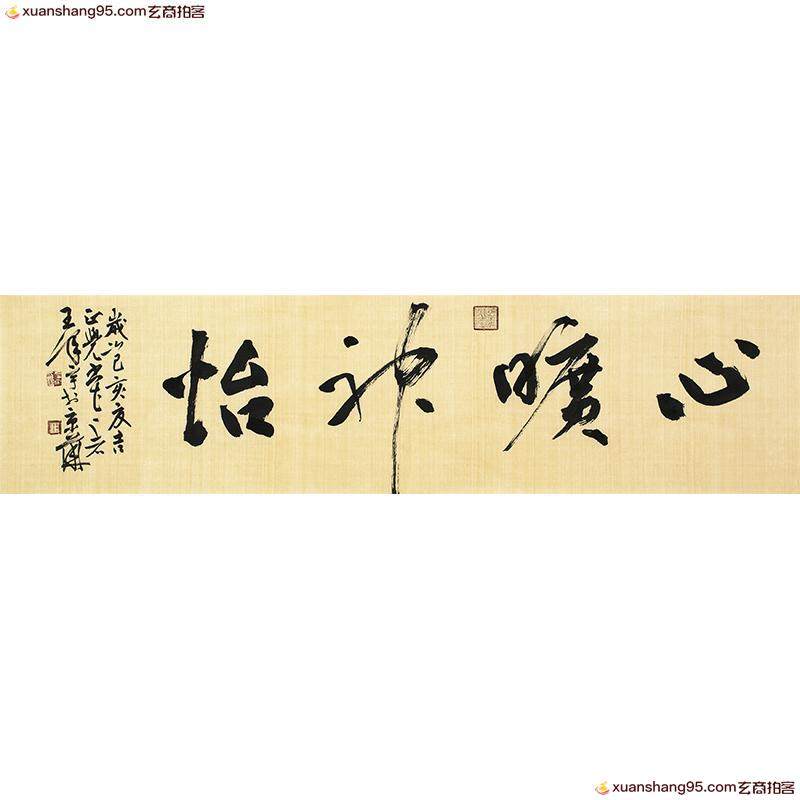 xuanshang95.com玄商拍客
心曠神怡
歲次己亥夏吉
正覺堂
王
xuanshang95.com玄商拍客